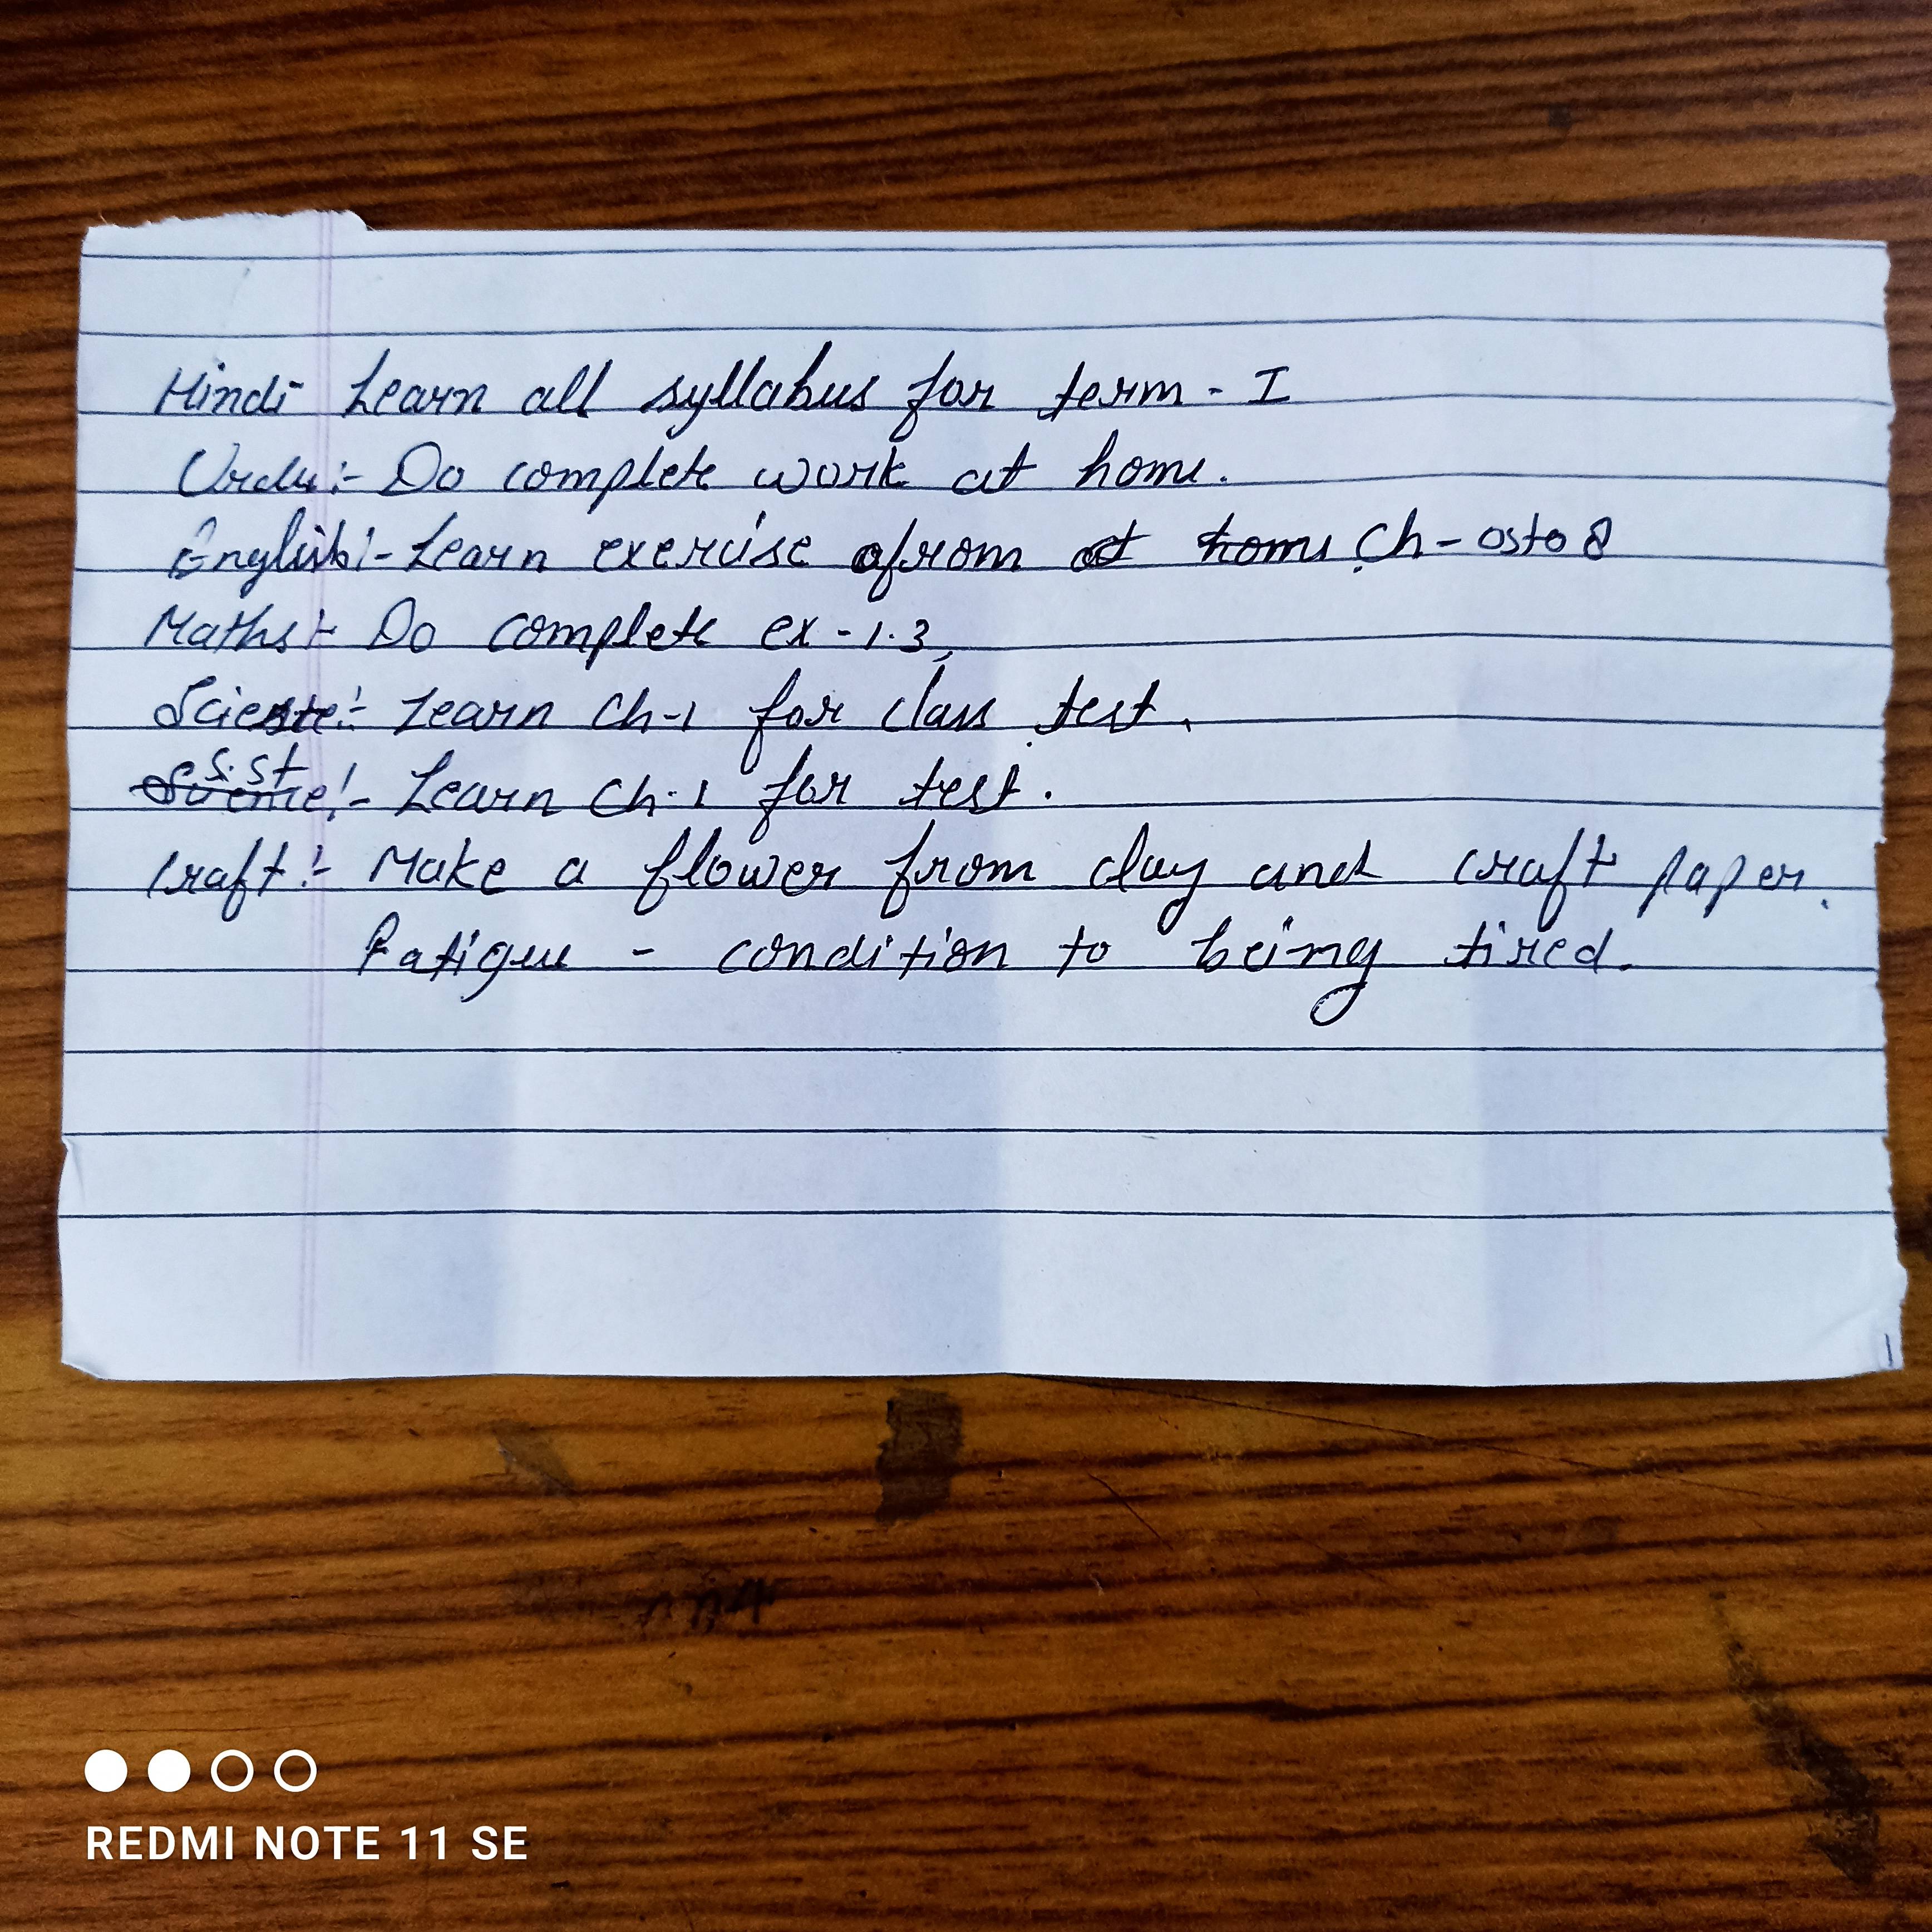 Hindi- Learn all syllabus for term - I
Urdu:- Do complete work at home.
English:- Learn exercise from at home Ch- 05to 8
Maths:- Do complete ex - 1.3
Science:- Learn Ch-1 for class test.
S.St
Science:- Learn Ch-1 for test.
Craft:- Make a flower from clay and craft paper.
Fatigue - condition to being tired.
REDMI NOTE 11 SE